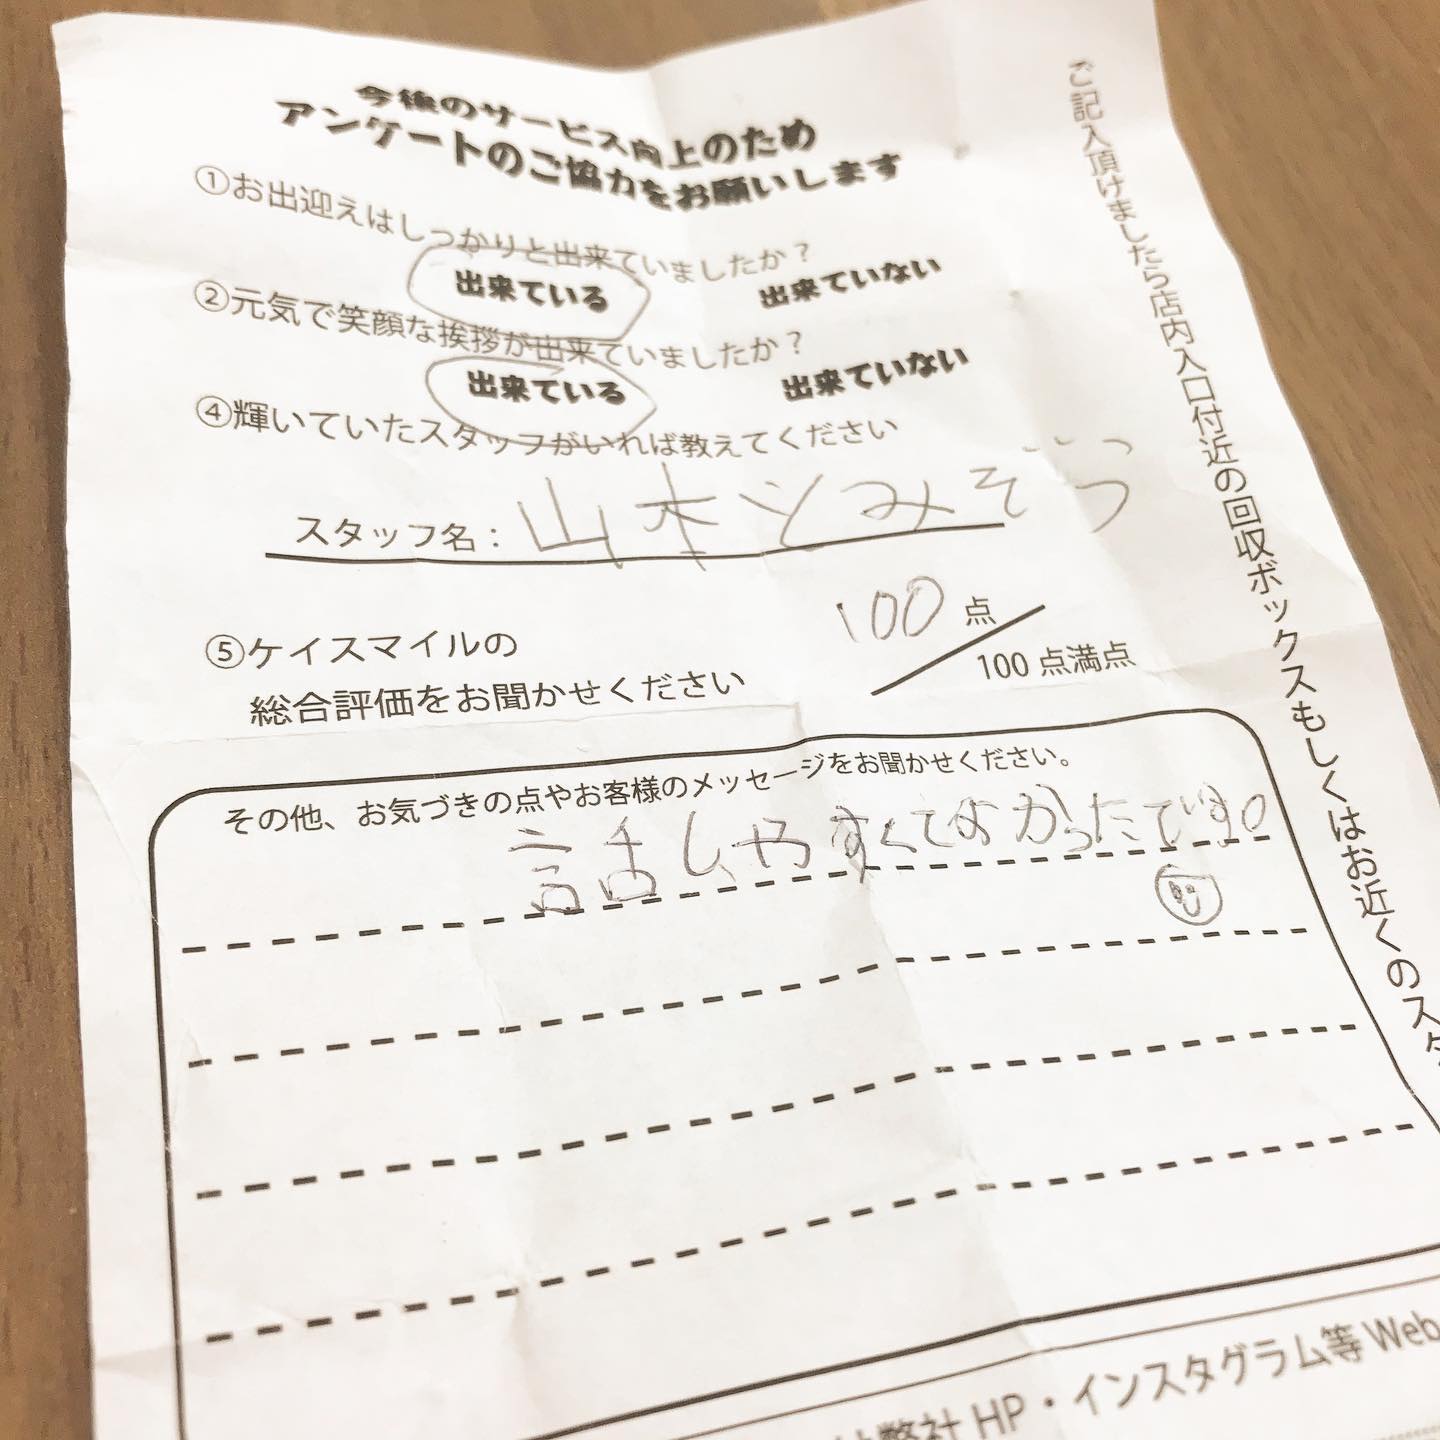 今後のサービス向上のため
アンケートのご協力をお願いします
①お出迎えはしっかりと出来ていましたか？
出来ている 出来ていない
②元気で笑顔な挨拶が出来ていましたか？
出来ている 出来ていない
④輝いていたスタッフがいれば教えてください
スタッフ名： 山本とみぞう
⑤ケイスマイルの
総合評価をお聞かせください
100点
100点満点
その他、お気づきの点やお客様のメッセージをお聞かせください。
話しやすくてよかったです。
弊社HP・インスタグラム等Web
ご記入頂けましたら店内入口付近の回収ボックスもしくはお近くのスタ